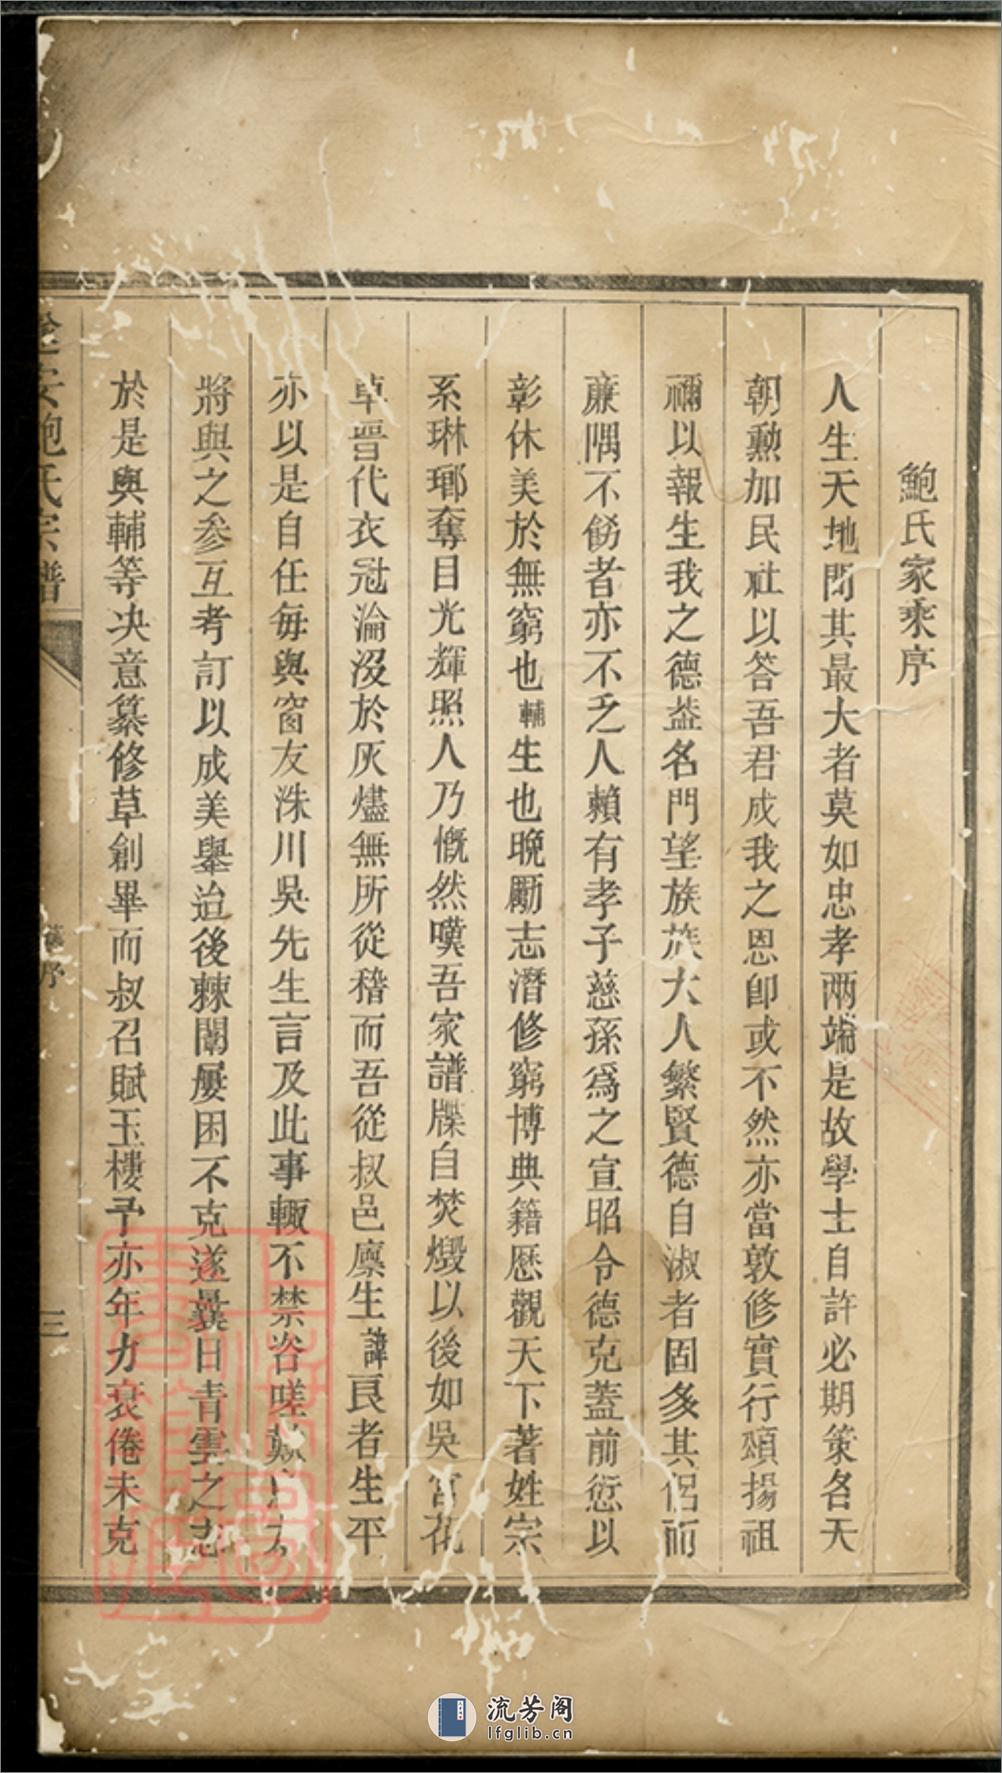 鮑氏家乘序
人生天地間其最大者莫如忠孝兩端是故學士自許必期策名天
朝勲加民社以答吾君成我之恩卽或不然亦當敦修實行頌揚祖
禰以報生我之德葢名門望族族大人繁賢德自淑者固多其侶而
亷隅不飭者亦不乏人賴有孝子慈孫爲之宣昭令德克蓋前愆以
彰休美於無窮也輔生也晚勵志潛修窮博典籍歷觀天下著姓宗
系琳瑯奪目光輝照人乃慨然嘆吾家譜牒自焚燬以後如吳宮花
草晋代衣冠淪沒於灰燼無所從稽而吾從叔邑廪生諱良者生平
亦以是自任每與窗友洙川吳先生言及此事輙不禁咨嗟
將與之參互考訂以成美舉迨後棘闈屢困不克遂曩日青雲之志
於是與輔等决意纂修草創畢而叔召賦玉樓予亦年力衰倦未克
安鮑氏宗譜
序
三
流芳阁
lfglib.cn